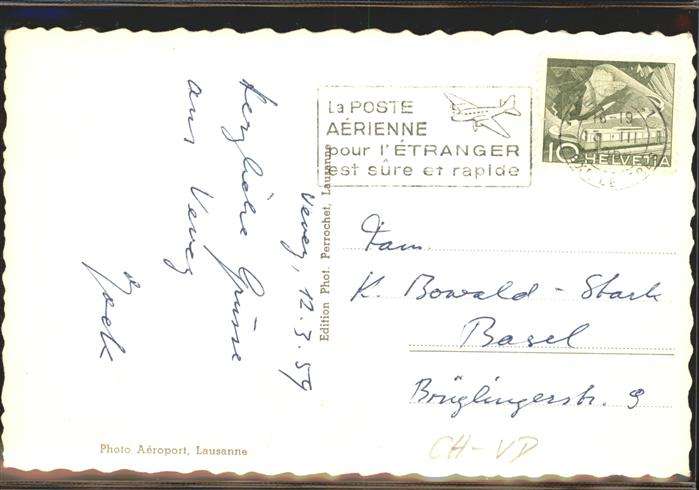 Herzliche Grüsse
aus Vevey
Vevey, 12.3.59
Edition Phot. Perrochet, Lausanne
Photo Aéroport, Lausanne
La POSTE
AÉRIENNE
pour l'ÉTRANGER
est sûre et rapide
18-19
10 HELVETIA
Fam.
K. Bowald - Stark
Basel
Brüglingerstr. 9
CH-VD